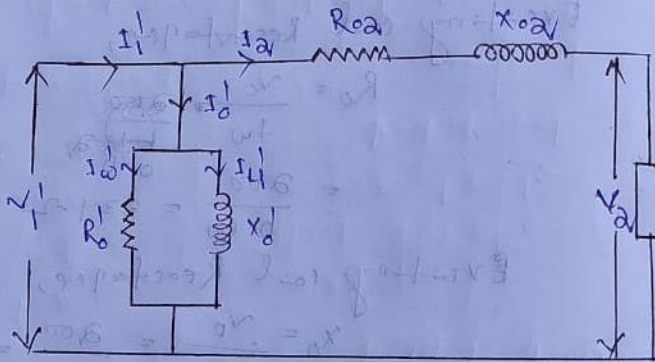 I₁' I₂ R₀₂ X₀₂
I₀'
I'ω I'μ
V₁' R₀' X₀' V₂